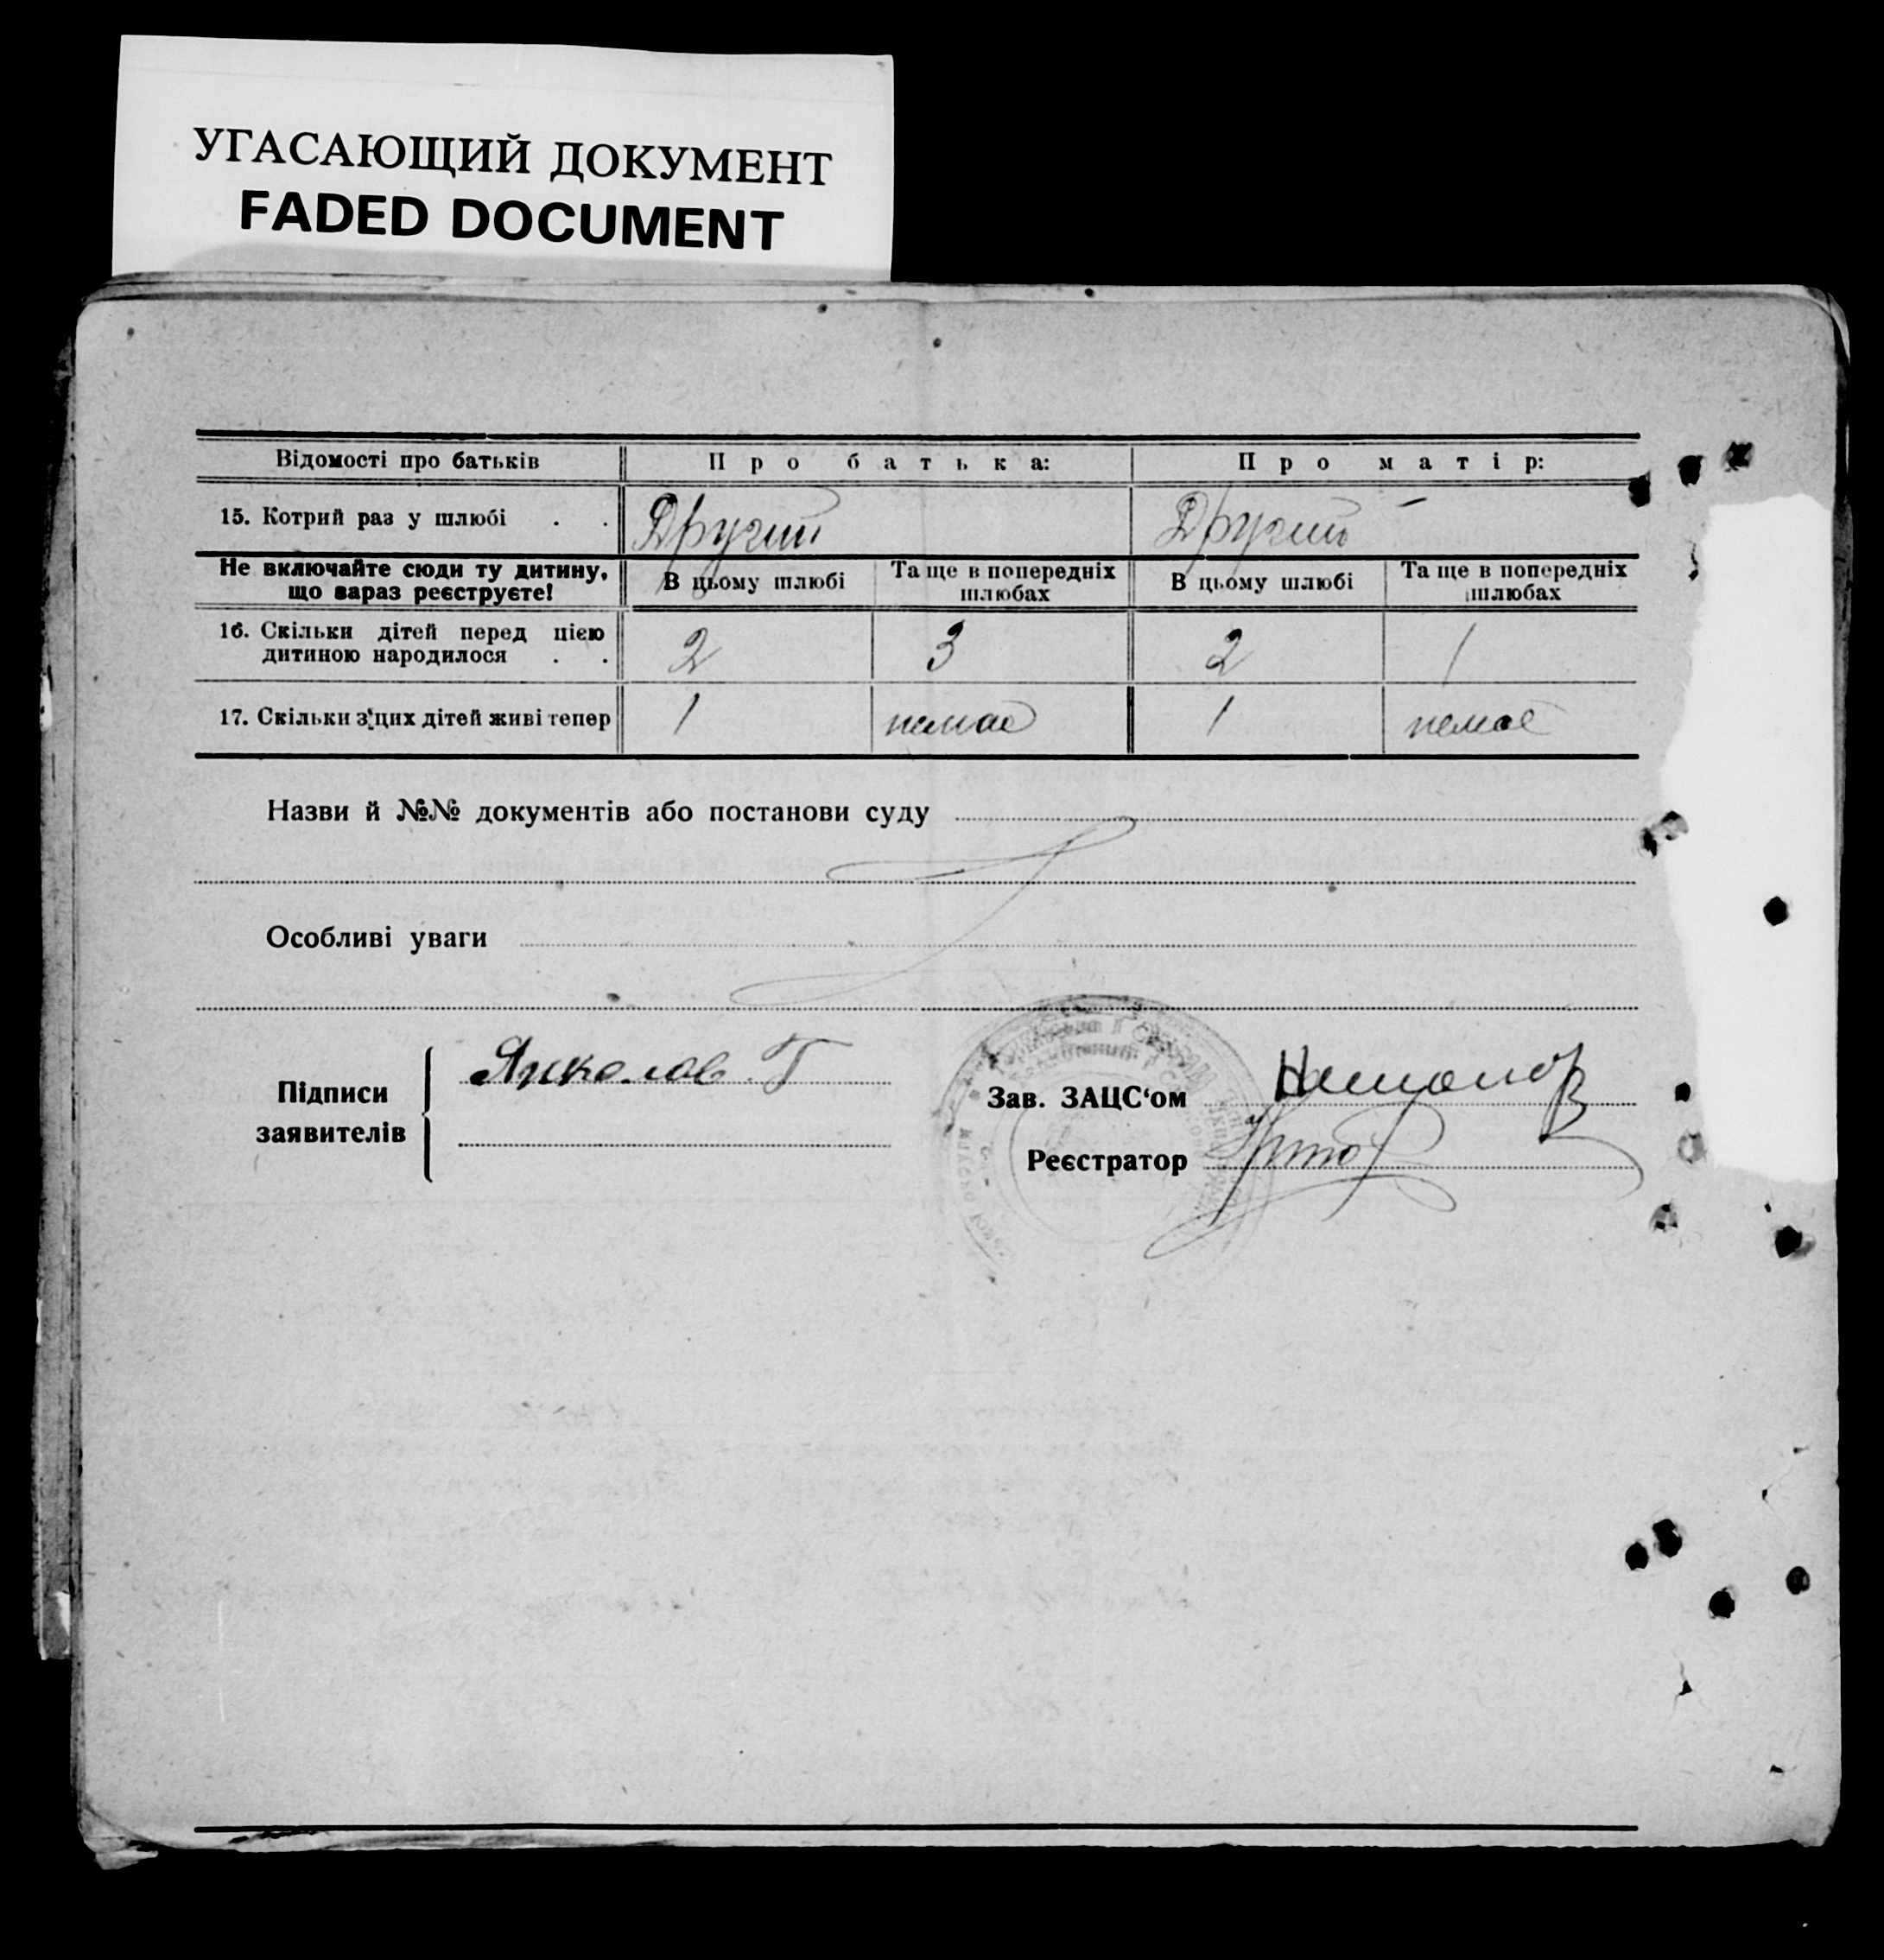 УГАСАЮЩИЙ ДОКУМЕНТ
FADED DOCUMENT
Відомості про батьків Про батька: Про матір:
15. Котрий раз у шлюбі . . Другий Другий
Не включайте сюди ту дитину, що зараз реєструєте! В цьому шлюбі Та ще в попередніх шлюбах В цьому шлюбі Та ще в попередніх шлюбах
16. Скільки дітей перед цією дитиною народилося . . 2 3 2 1
17. Скільки з'цих дітей живі тепер 1 немає 1 немає
Назви й №№ документів або постанови суду
Особливі уваги
Підписи заявителів
Зав. ЗАЦС'ом
Реєстратор